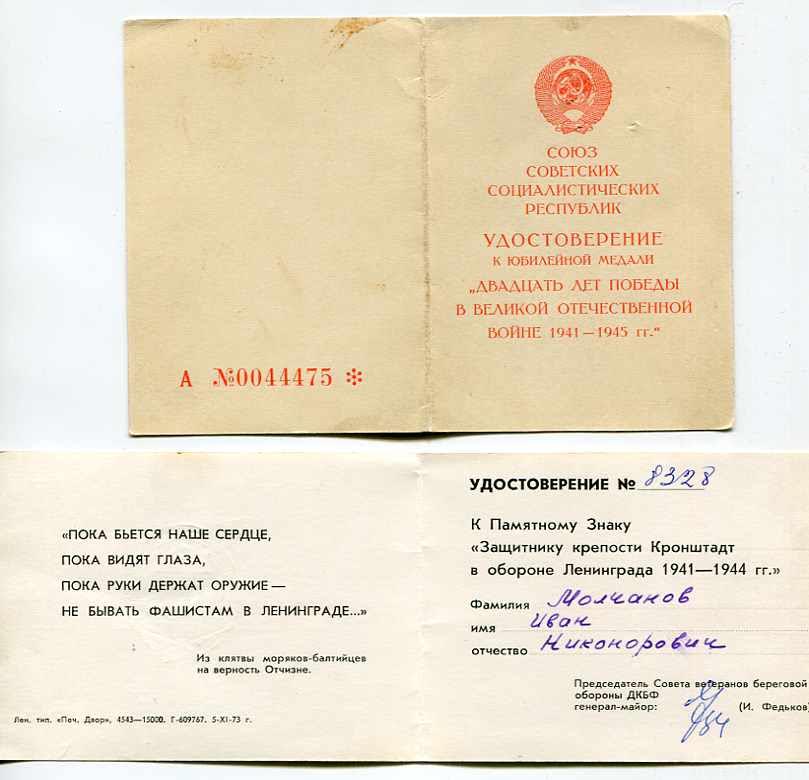 СОЮЗ
СОВЕТСКИХ
СОЦИАЛИСТИЧЕСКИХ
РЕСПУБЛИК
УДОСТОВЕРЕНИЕ
К ЮБИЛЕЙНОЙ МЕДАЛИ
„ДВАДЦАТЬ ЛЕТ ПОБЕДЫ
В ВЕЛИКОЙ ОТЕЧЕСТВЕННОЙ
ВОЙНЕ 1941—1945 гг.“
А №0044475
«ПОКА БЬЕТСЯ НАШЕ СЕРДЦЕ,
ПОКА ВИДЯТ ГЛАЗА,
ПОКА РУКИ ДЕРЖАТ ОРУЖИЕ—
НЕ БЫВАТЬ ФАШИСТАМ В ЛЕНИНГРАДЕ...»
Из клятвы моряков-балтийцев
на верность Отчизне.
Лен. тип. «Печ. Двор», 4543—15000. Г-609767. 5-XI-73 г.
УДОСТОВЕРЕНИЕ № 8328
К Памятному Знаку
«Защитнику крепости Кронштадт
в обороне Ленинграда 1941—1944 гг.»
Фамилия Молчанов
имя Иван
отчество Никонорович
Председатель Совета ветеранов береговой
обороны ДКБФ
генерал-майор: (И. Федьков)